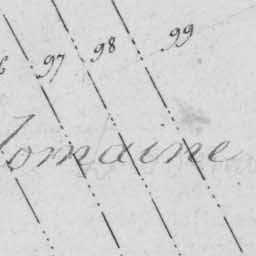 97 98 99
Domaine